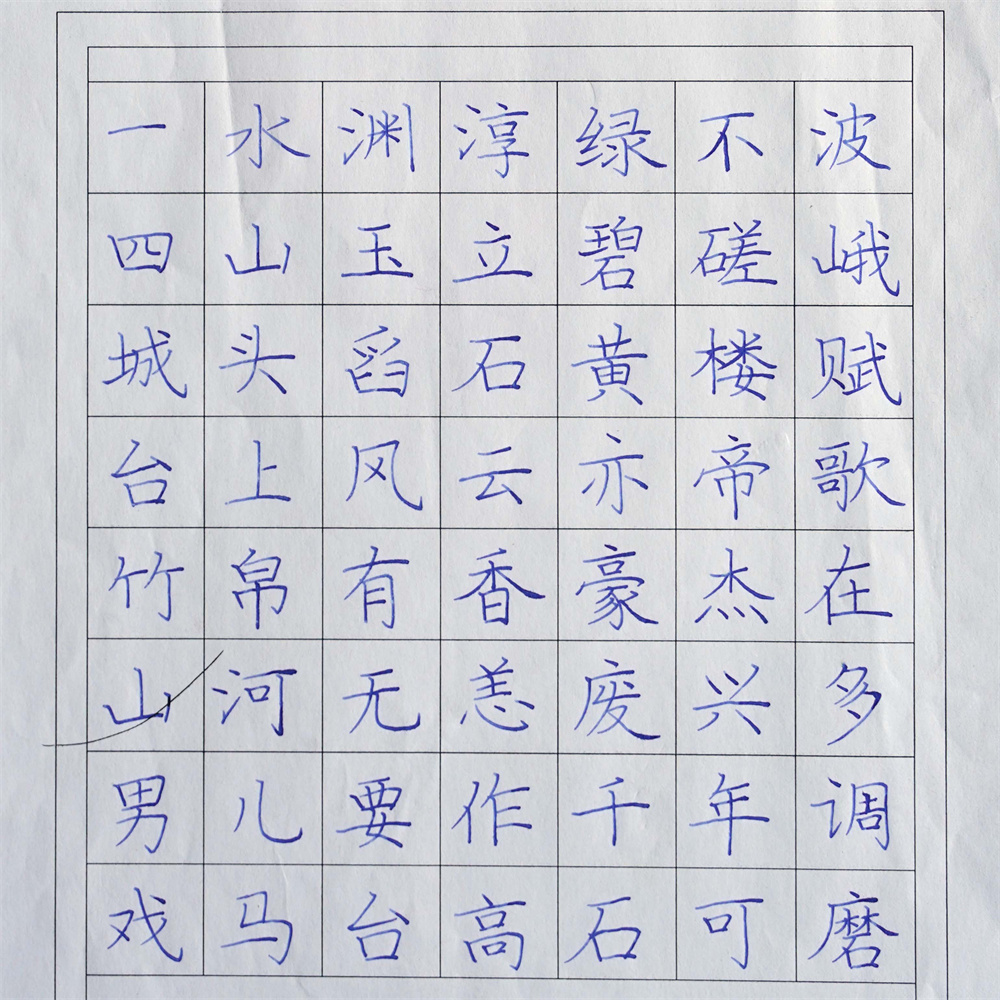 一水渊淳绿不波
四山玉立碧磋峨
城头舀石黄楼赋
台上风云亦帝歌
竹帛有香豪杰在
山河无恙废兴多
男儿要作千年调
戏马台高石可磨